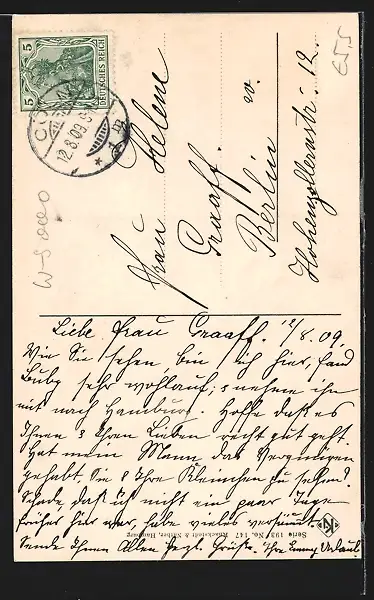 5 5
DEUTSCHES REICH
12.8.09
Frau Helene
Graaff.
Berlin w.
Hohenzollernstr. 12.
Liebe Frau Graaff. 12/8.09.
Wie Sie sehen bin ich hier, fand
Buby sehr wohlauf; nehme ihn
mit nach Hamburg. Hoffe daß es
Ihnen & Ihren Lieben recht gut geht.
Hat mein Mann das Vergnügen
gehabt, Sie & Ihre Kleinchen zu sehen?
Schade daß ich nicht ein paar Tage
früher hier war, habe vieles versäumt.
Sende Ihnen Allen herzl. Grüße. Ihre
Serie 193 No. 147 Knackstedt & Näther, Hamburg